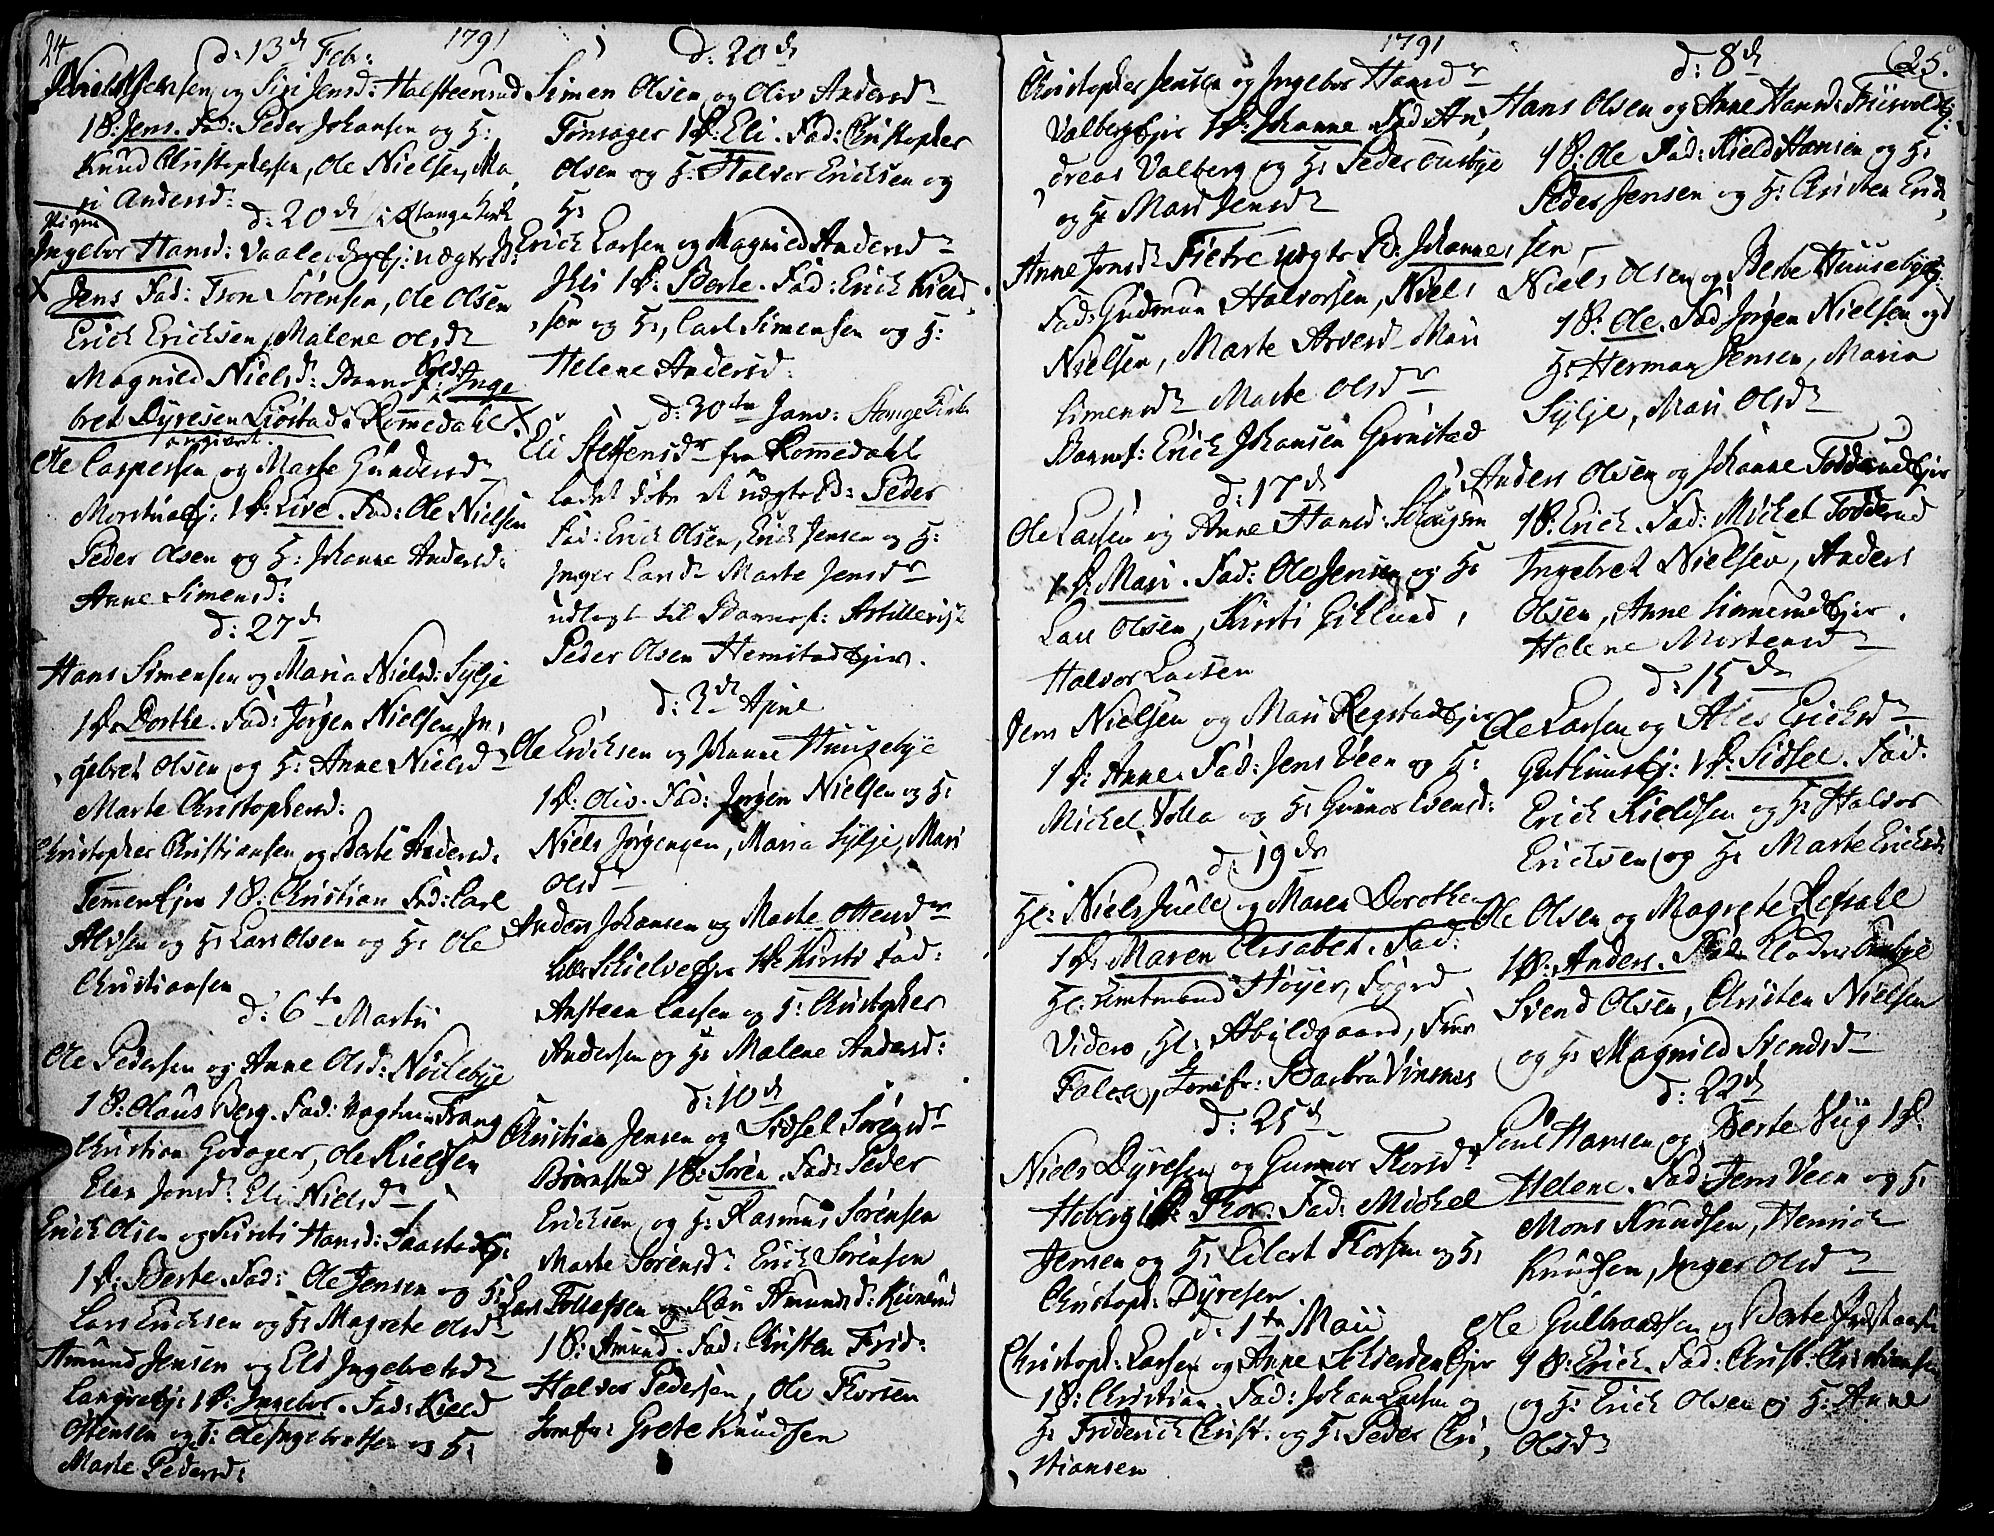 24 1791
d: 13de Feb:
Niels Jensen og Siri Jensd: Halsteensrud
1 B: Jens. Fad: Peder Johansen og H:
Knud Christophersen, Ole Nielsen, Ma,
ri Andersd:
d: 20de i Stange Kirke
Pigen
Ingebor Hansd: Vaaler Eje: uægte B:
Jens Fad: Iron Sørensen, Ole Olsen
Erick Ericksen, Malene Olsdr
Magnild Nielsd: Barnef: Inge
bret Dyresen Siøstad i Romedahl
angivet.
Ole Caspersen og Marte Gundersdr
Morstuaej: 1 P: Live. Fad: Ole Nielsen
Peder Olsen og H: Johanne Andersd:
Anne Simensd:
d: 27de
Hans Simensen og Maria Nielsd: Sylje
1 P: Dorthe. Fad: Jørgen Nielsen, In,
gebret Olsen og H: Anne Nielsdr
Marte Christophersd:
Christopher Christiansen og Berte Andersd:
Temmen Ejer 1 B: Christian Fad: Carl
Alfsen og H: Lars Olsen og H: Ole
Christiansen
d: 6te Martii
Ole Pedersen og Anne Olsd: Nøclebye
1 B: Olaus Berg. Fad: Frang
Christian Godager, Ole Kieldsen
Elen Jonsd: Eli Nielsdr
Erich Olsen og Kirsti Hansd: Saastad Ej:
1 P: Berte. Fad: Ole Jensen og H:
Lars Ericksen og H: Magrete Olsdr
Amund Jensen og Eli Ingebretsdr
Langreej: 1 P: Ingebor. Fad: Kield
Ostensen og H: Ole Ingebretsen og H:
Marte Pedersd:
d: 20de
Simen Olsen og Oliv Andersdr
Tønsager 1 P: Eli. Fad: Christopher
Olsen og H: Halvor Ericksen og
H:
Erick Larsen og Magnild Andersdr
1 P: Berte. Fad: Erick Kield,
sen og H:, Carl Simensen og H:
Helene Andersd:
d: 30te Janv: Stange Kirke
Eli Steffensdr fra Romedahl
ladet døbe et uægte B: Peder
Fad: Erick Olsen, Erick Jensen og H:
Inger Larsdr Marte Jensdr
udlagt til Barnef: Artillerist
Peder Olsen Hemstad Ejer.
d: 3de April
Ole Ericksen og Johanne Huusebye
1 P: Oliv. Fad: Jørgen Nielsen og H:
Niels Jørgensen, Maria Sylje, Mari
Olsdr
Anders Johansen og Marte Ottersdr
Lille Skielve Ejer 1 P: Kirsti Fad:
Ansteen Larsen og H: Christopher
Andersen og H: Malene Andersd:
d: 10de
Christian Jensen og Sidsel Sørensdr
Biørnstad 1 B: Søren. Fad: Peder
Ericksen og H: Rasmus Sørensen
Marte Sørensdr Erick Sørensen
Lars Tollefsen og Kari Amundsd: Kiønerud
1 B: Amund. Fad: Christen Frid:
Halvor Pedersen, Ole Thorsen
Jomfr: Grete Knudsen
1791
Christopher Jensen og Ingebor Hansdr
Valberg Ejer 1 P: Johanne Fad: An,
dreas Valberg og H: Peder Ousbye
og H: Mari Jensdr
Anne Jonsdr Fietre uægte B: Johannes
Fad: Gudmun Halvorsen, Niels
Nielsen, Marte Arvesdr Mari
Simensdr Marte Olsdr
Barnef: Erich Johansen Grønstad
d: 17de
Ole Larsen og Anne Hansd: Schougen
1 P: Mari. Fad: Ole Jensen og H:
Lars Olsen, Kirsti Giklund,
Halvor Larsen
Jens Nielsen og Mari Regstad Ejer
1 P: Anne. Fad: Jens Veen og H:
Michel Volla og H: Gunnor Evensd:
d: 19de
Hr: Niels Juell og Maren Dorothea
1 P: Maren Elisabet. Fad:
Hr: Amtmand Høyer, Fogd
Videro, Hr: Abildgaard, Frue
Falck, Jomfr: Barbra Vinsnes
d: 25de
Niels Dyresen og Gunnor Thorsdr
Hoberg 1 B: Thor. Fad: Michel
Jensen og H: Eilert Thorsen og H:
Christoph: Dyresen.
d: 1te Maii
Christoph: Larsen og Anne Schierden Ejer
1 B: Christian. Fad: Johan Larsen og
H: Friderich Christ. og H: Peder Chri,
stiansen
25.
d: 8de
Hans Olsen og Anne Hansd: Friisvold Ej:
1 B: Ole Fad: Kield Hansen og H:
Peder Jensen og H: Christen Erick,
sen
Niels Olsen og Berte Huusebye Ej:
1 B: Ole. Fad: Jørgen Nielsen og
H: Herman Jensen, Maria
Sylje, Mari Olsdr
Anders Olsen og Johanne Tødderud Ejer
1 B: Erick. Fad: Michel Tødderud
Ingebret Nielsen, Anders
Olsen, Anne Simmerud Ejer,
Helene Mortensdr
d: 15de
Ole Larsen og Ales Ericksdr
Guthuus Ej: 1 P: Sidsel. Fad:
Erick Kieldsen og H: Halvor
Ericksen og H: Marte Ericksd:
Ole Olsen og Magrete Refsahl
1 B: Anders. Fad:
Svend Olsen, Christen Nielsen
og H: Magnild Svendsdr
d: 22de
Poul Hansen og Berte Viig 1 P:
Helene. Fad: Jens Veen og H:
Mons Knudsen, Henrick
Knudsen, Inger Olsdr
Ole Gulbrandsen og Berte
1 B: Erick. Fad: Christ: Christiansen
og H: Erick Olsen og H: Anne
Olsdr